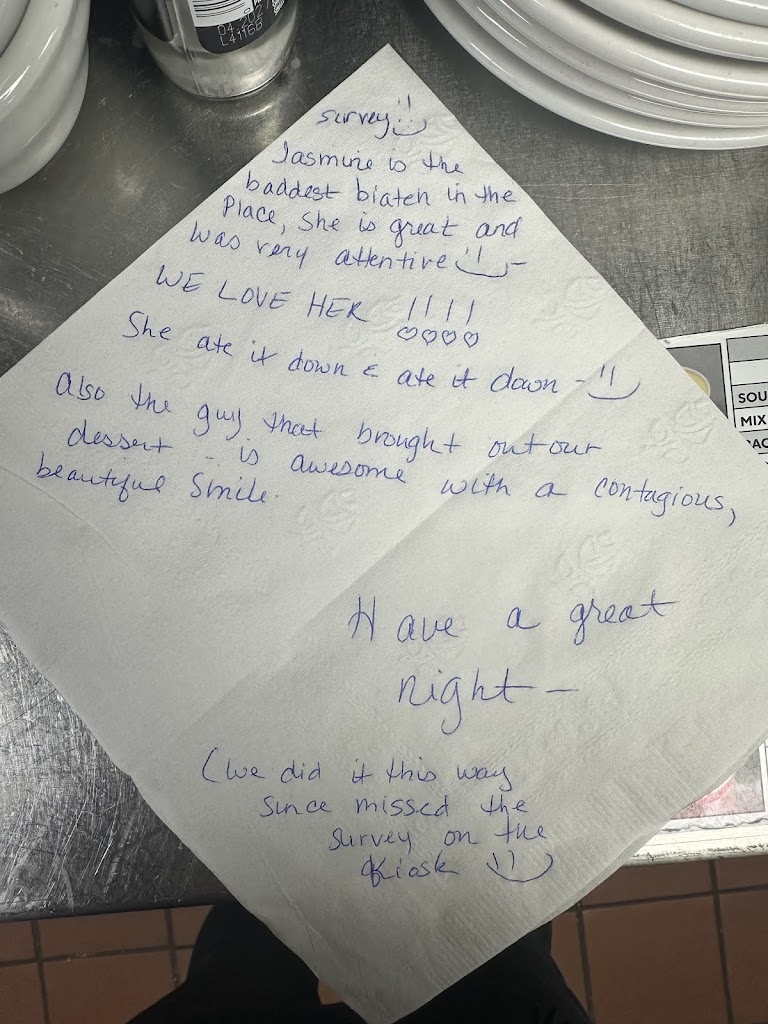 04.202
L4116B
survey
Jasmine is the
baddest biatch in the
place, She is great and
was very attentive -
WE LOVE HER !!!!
She ate it down & ate it down -
Also the guy that brought out our
dessert - is awesome with a contagious,
beautiful Smile.
Have a great
night -
(we did it this way
since missed the
survey on the
Kiosk
SOU
MIX